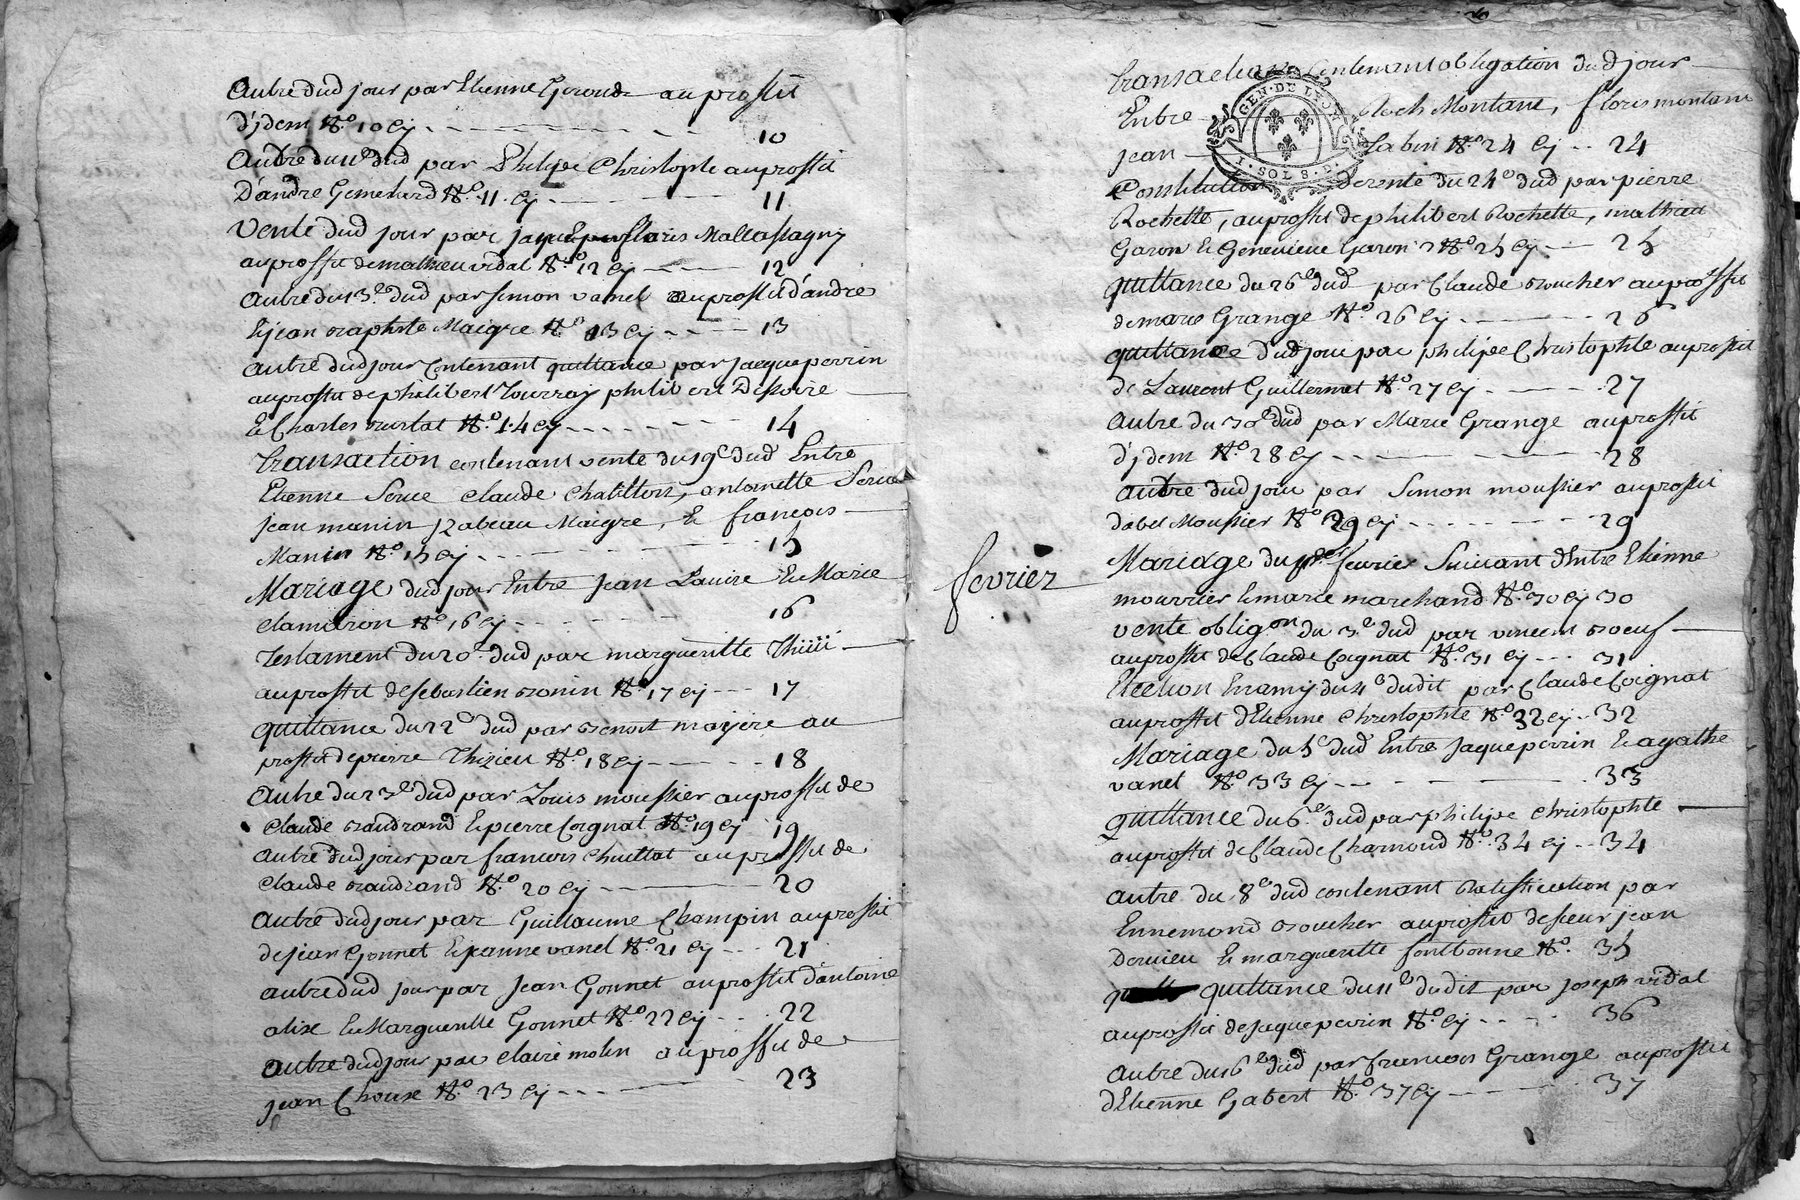 Autre dud jour par Etienne Gironde au proffit
d'jdem N.º 10 Cy 10
Autre du 11e dud par Philipe Christophle au proffit
D'andre Gemehard N.º 11 Cy 11
Vente dud jour par Mallassagny
au proffit de mathieu vidal N.º 12 Cy 12
Autre du 13e dud par Simon vanel au proffit d'andre
& jean baptiste Maigre N.º 13 Cy 13
autre dud jour Contenant quittance par Jacque perrin
au proffit de philibert Tourray philibert
& Charles N.º 14 Cy 14
Transaction contenant vente du 19e dud Entre
Etienne Serve claude Chatillon, antoinette Serve
jean manin jzabeau Maigre, & francois
Manin N.º 15 Cy 15
Mariage dud jour Entre jean & Marie
clamaron N.º 16 Cy 16
Testament du 20e dud par margueritte
au proffit de sebastien bonin N.º 17 Cy 17
quittance du 22e dud par benoit mayere au
proffit de pierre Thizieu N.º 18 Cy 18
Autre du 23e dud par Louis moussier au proffit de
claude baudrand & pierre Coignat N.º 19 Cy 19
autre dud jour par francois Chuillat au proffit de
Claude baudrand N.º 20 Cy 20
Autre dud jour par Guillaume Champin au proffit
de jean Gonnet & jeanne vanel N.º 21 Cy 21
autre dud jour par jean Gonnet au proffit d'antoine
alix & Margueritte Gonnet N.º 22 Cy 22
autre dud jour par Claire molin au proffit de
jean Choux N.º 23 Cy 23
Transaction Contenant obligation dud jour
Entre Roch Montant, floris montant
jean Sabin N.º 24 Cy 24
GEN. DE LYON
I. SOL 8. D.
Constitution de rente du 24e dud par pierre
Rochette, au proffit de philibert Rochette, mathieu
Garon & Genevieve Garon N.º 25 Cy 25
quittance du 26e dud par Claude boucher au proffit
de marie Grange N.º 26 Cy 26
quittance dud jour par philipe Christophle au proffit
de Laurent Guillermet N.º 27 Cy 27
autre du 30e dud par Marie Grange au proffit
d'jdem N.º 28 Cy 28
autre dud jour par Simon moussier au proffit
d'abel Moussier N.º 29 Cy 29
fevrier
Mariage du pr. fevrier Suivant d'Entre Etienne
mourrier & marie marchand N.º 30 Cy 30
vente oblig.on du 3e dud par vincent boeuf
au proffit de Claude Coignat N.º 31 Cy 31
Election En amy du 4e dudit par Claude Coignat
au proffit d'Etienne Christophle N.º 32 Cy 32
Mariage du 5e dud Entre Jaque perrin & agathe
vanel N.º 33 Cy 33
quittance du 6e dud par philipe Christophle
au proffit de Claude Chamond N.º 34 Cy 34
autre du 8e dud contenant Ratiffication par
Ennemond boucher au proffit de sieur jean
Dervieu & margueritte fontbonne N.º 35
quittance du 11e dudit par joseph vidal
au proffit de jaque perrin N.º Cy 36
Autre du 16e dud par francois Grange au proffit
d'Etienne Gabert N.º 37 Cy 37